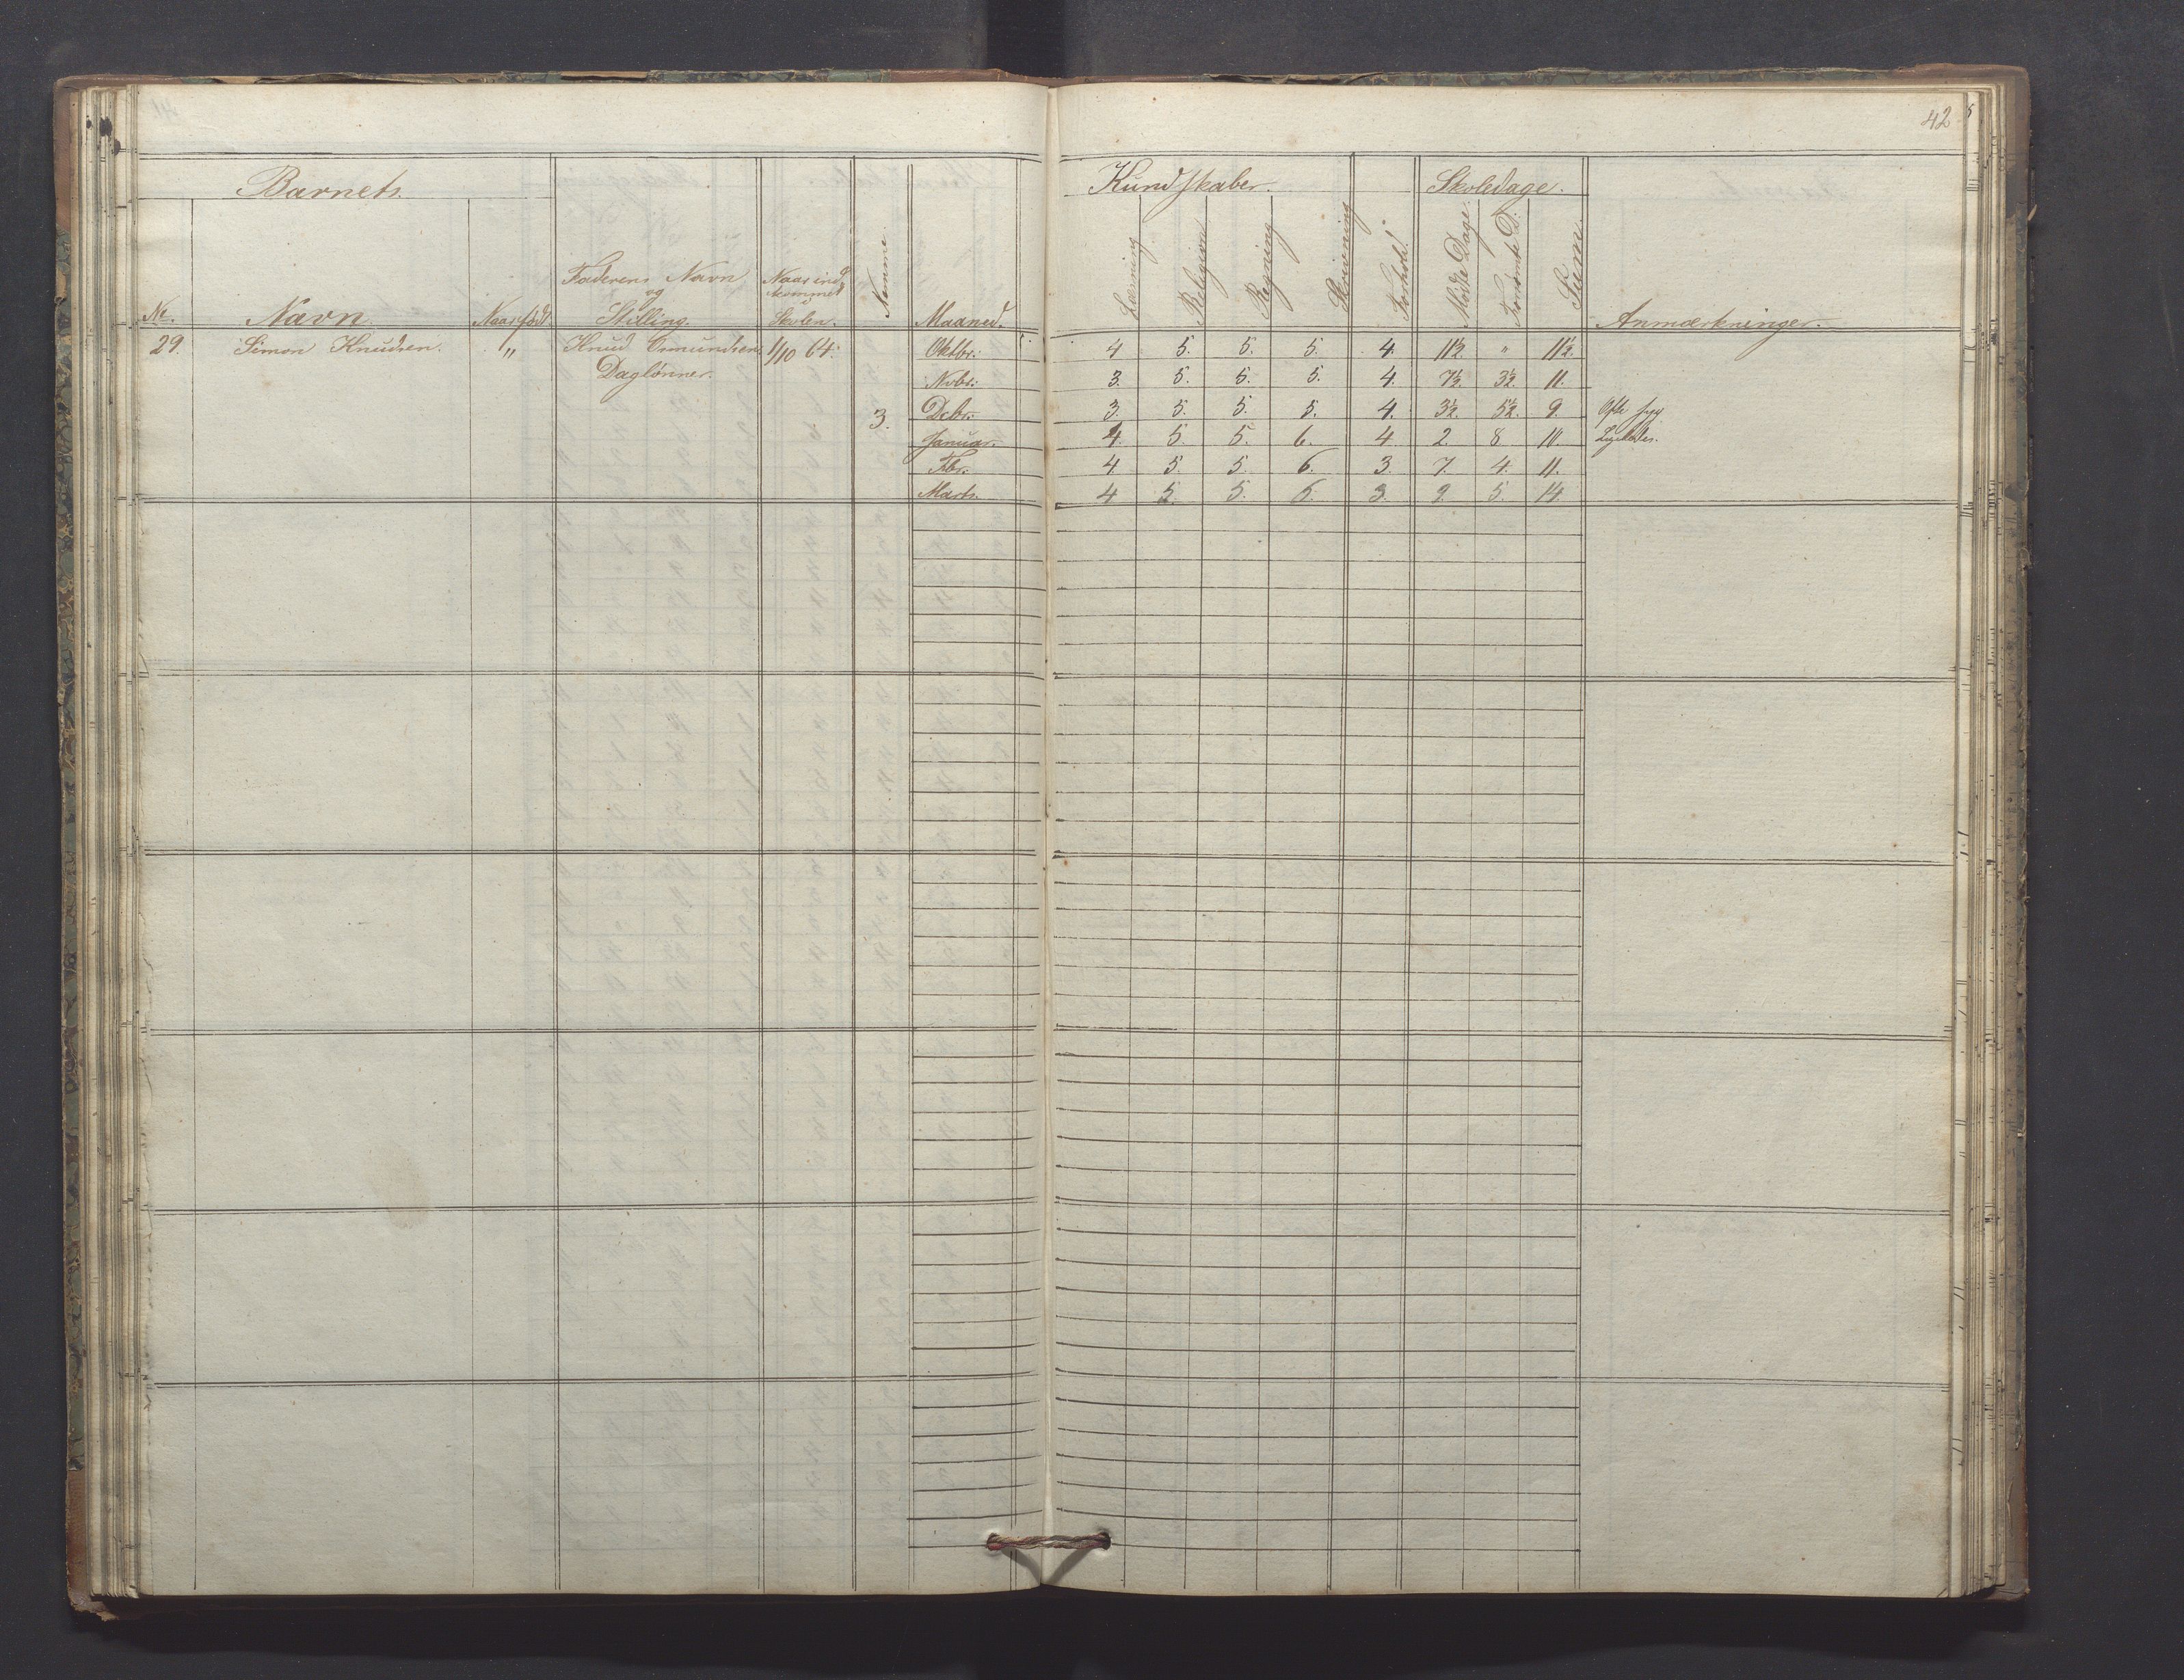 42
Barnets.
Kundskaber.
Skoledage.
No.
Navn.
Naar født.
Faderens Navn
og
Stilling.
Naar ind
kommet
i
Skolen.
Maaned.
Læsning
Religion
Regning
Skrivning
Forhold.
Mødte Dage.
Forsømte D.
Sum.
Anmærkninger.
29. Simon Knudsen. " Knud Osmundsen 1/10 64. Oktbr: 4 5. 5. 5. 4. 11½ " 11½
Daglønner. Nvbr: 3. 5. 5. 5. 4. 7½. 3½. 11.
3. Dcbr: 3. 5. 5. 5. 4. 3½. 5½. 9. Ofte syg
Januar. 4. 5. 5. 6. 4 2. 8. 10 Ligeledes.
Fbr: 4. 5. 5. 6. 3. 7. 4. 11.
Marts. 4 5. 5. 6. 3. 9. 5. 14.